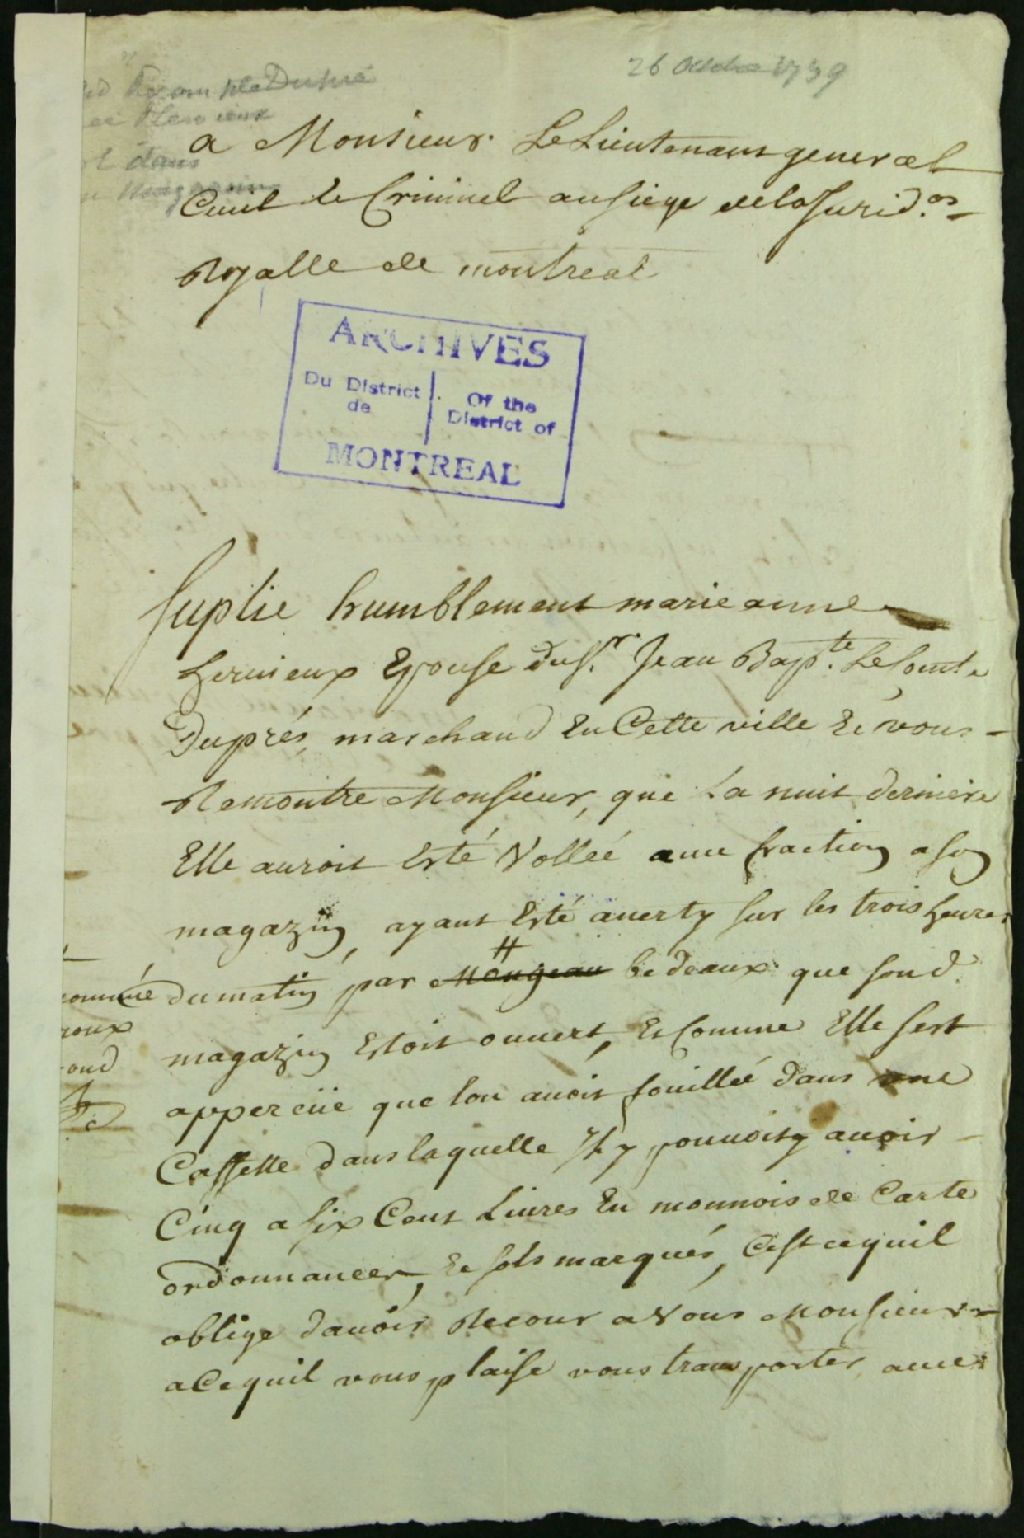 26 Octobre 1739
Dupré
dans
Magazin
a Monsieur Le Lieutenant general
Ciuil & Criminel au siege dela Jurid.on
Royalle de montreal
ARCHIVES
Du District de
Of the District of
MONTREAL
Suplie humblement marie anne
heruieux Epouse du S.r Jean Bap.te LeComte
Duprés, marchand En Cette ville Et vous
Remontre Monsieur, que La nuit derniere
Elle auroit Esté Volleé auec fraction a son
magazin, ayant Esté auerty sur les trois heures
du matin par Mengeau # bedeaux que sond.
magazin Estoit ouuert, Et Comme Elle sest
apperciie que lon auoit fouillée dans une
Cassette dans laquelle Il y pouuoit y auoir
Cinq a six Cent Liures En monnois de Carte
ordonnances, & sols marqués, Cest ce quil
oblige dauoir Recour a Vous Monsieur
a Ce quil vous plaise vous transporter auec